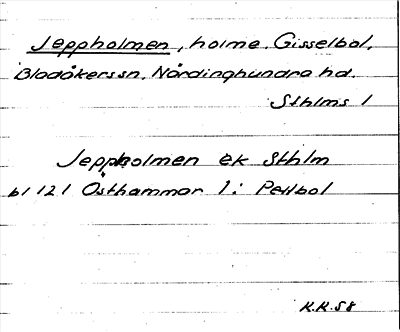 Jeppholmen, holme, Gisselbol,
Bladåkers sn. Närdinghundra hd.
Sthlms l
Jeppholmen ek Sthlm
bl 121 Östhammar 1: Pellbol
K.K.58